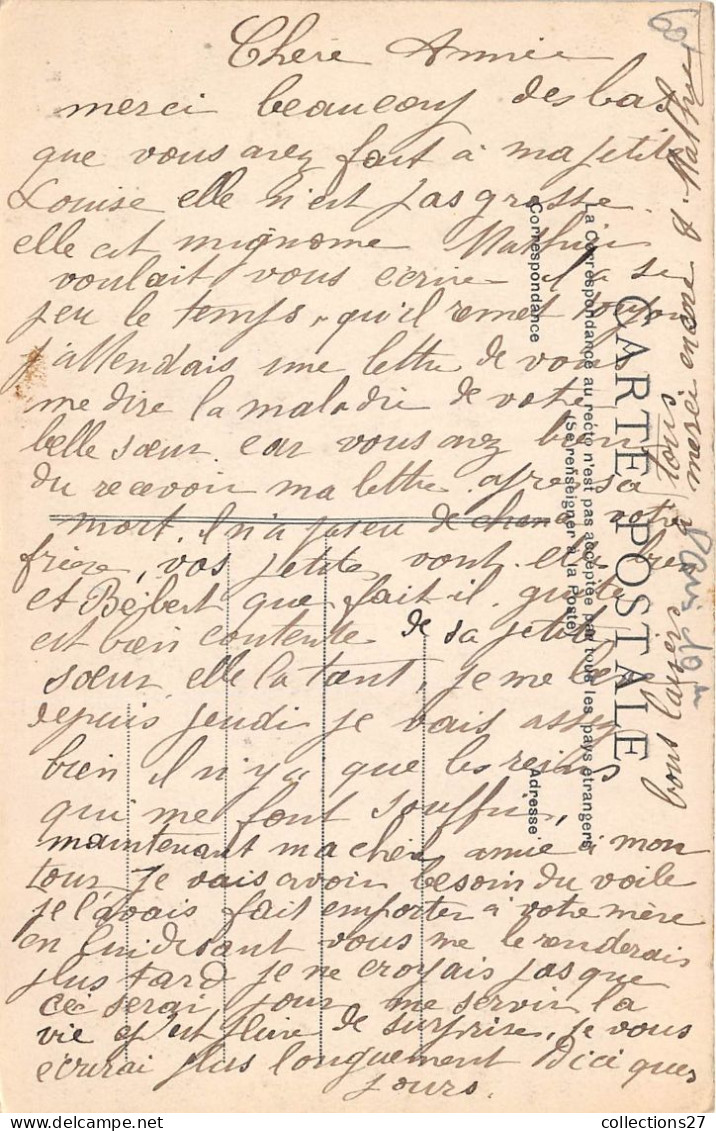 Chère Amie
merci beaucoup des bas
que vous avez fait à ma petite
Louise elle n'est pas grosse
elle est mignonne Mathieu
voulait vous écrire il a si
peu le temps, qu'il remet toujours
j'attendais une lettre de vous
me dire la maladie de votre
belle sœur. car vous avez bien
du recevoir ma lettre après sa
mort. il n'a pas eu de chance votre
frère, vos petites vont elles bien
et Bébert que fait-il
est bien contente de sa petite
sœur elle la tant, je me lève
depuis jeudi je vais assez
bien il n'y a que les reins
qui me font souffrir,
maintenant ma chère amie à mon
tour je vais avoir besoin du voile
je l'avais fait emporter à votre mère
en lui disant vous me le renderais
plus tard je ne croyais pas que
ceci serai pour me servir la
vie est pleine de surprise, je vous
écrirai plus longuement d'ici ques
jours.
bons baisers à tous
merci encore
CARTE POSTALE
La Correspondance au recto n'est pas acceptée par tous les pays étrangers
(Se renseigner à la Poste)
Correspondance
Adresse
collections27